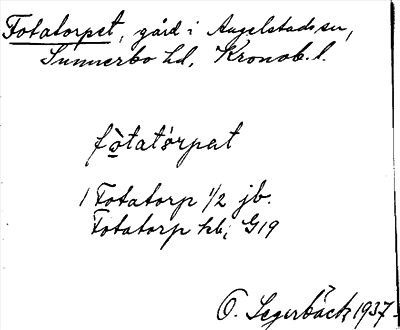 Fotatorpet, gård i Angelstads sn,
Sunnerbo hd, Kronob. l.
fòtatórpat
1 Fotatorp 1/2 jb.
Fotatorp hbj G19
O. Segerbäck 1937.